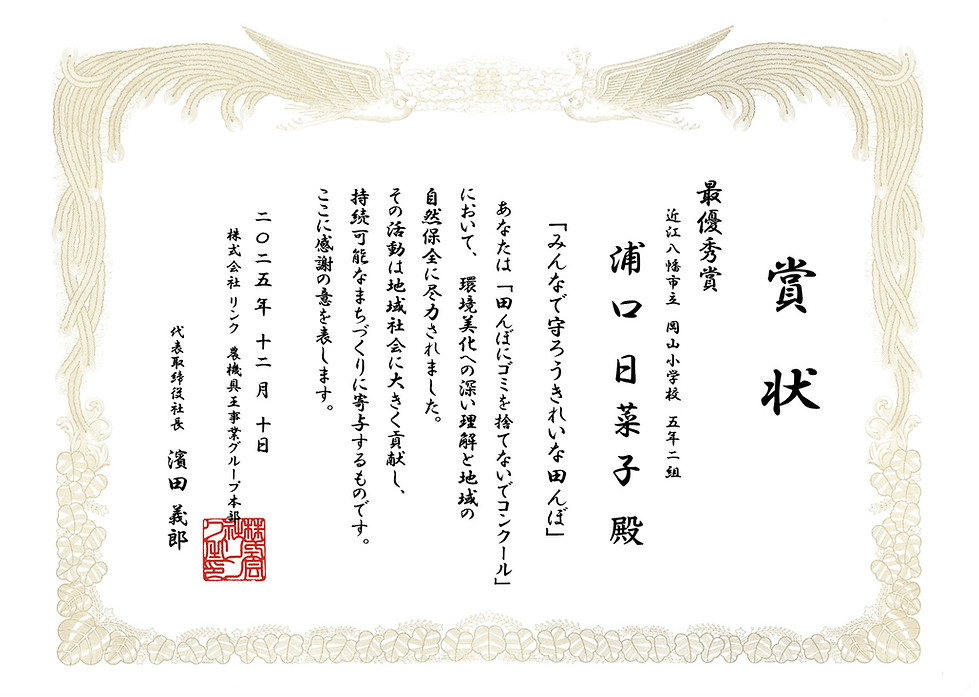 賞状
最優秀賞
近江八幡市立 岡山小学校 五年二組
浦口日菜子殿
「みんなで守ろうきれいな田んぼ」
あなたは「田んぼにゴミを捨てないでコンクール」
において、環境美化への深い理解と地域の
自然保全に尽力されました。
その活動は地域社会に大きく貢献し、
持続可能なまちづくりに寄与するものです。
ここに感謝の意を表します。
二〇二五年 十二月 十日
株式会社 リンク 農機具王事業グループ本部
代表取締役社長 濱田 義郎